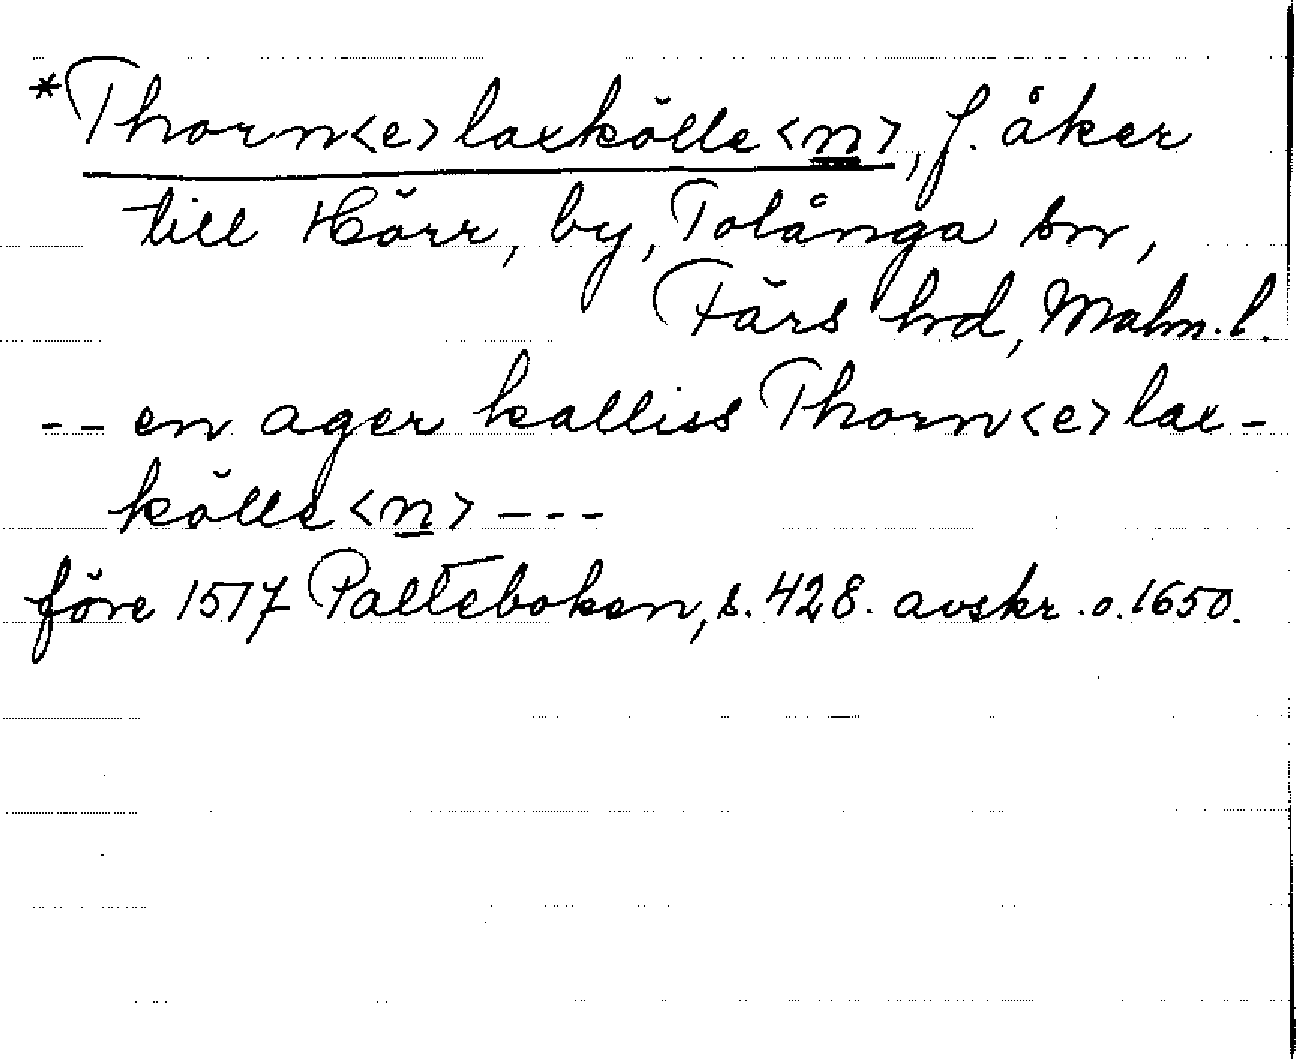 *Thorn<e>laxkölle<n>, f. åker
till Hörr, by, Tolånga sn,
Färs hrd, Malm. l.
-- en ager kalliss Thorn<e>lax-
kölle<n> ---
före 1517 Palteboken, s. 428. avskr. o. 1650.